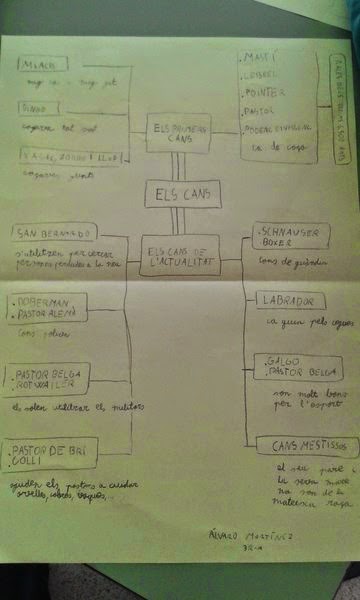 MIACIS
ELS PRIMERS
CANS
. MASTÍ
. LEBREL
. POINTER
. PASTOR
ca de caça
ELS CANS
SAN BERNARDO
s'utilitzen per cercar
persones perdudes a la neu
ELS CANS DE
L'ACTUALITAT
. SCHNAUSER
BOXER
cans de guàrdia
. DOBERMAN
. PASTOR ALEMÀ
cans policia
LABRADOR
ca guia pels cegues
. PASTOR BELGA
. ROTWAILER
els solen utilitzar els militars
. GALGO
. PASTOR BELGA
son molt bons
per l'esport
. PASTOR DE BRI
. COLLI
ajuden els pastors a cuidar
ovelles, cabres, vaques,...
CANS MESTISSOS
el seu pare i
la seva mare
no son de la
mateixa raça
ÁLVARO MARTÍNEZ